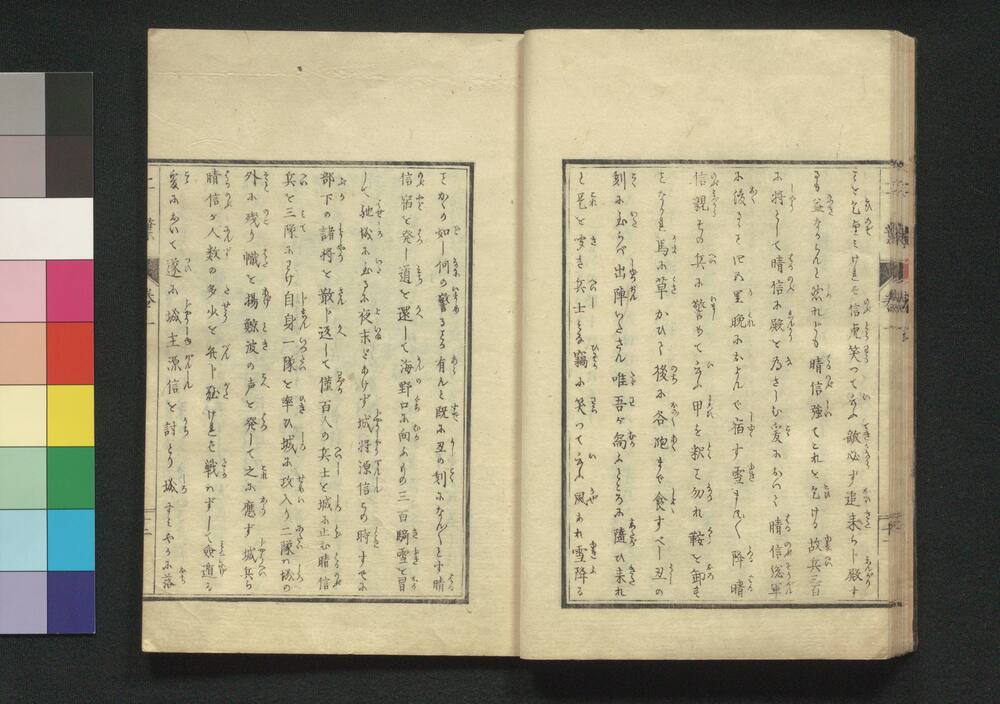 を乞望みければ信虎笑つて云敵必ず追来らじ殿す
るも益なからんと然れども晴信強てこれを乞ける故兵三百
を将して晴信に殿を為さしむ爰において晴信総軍
に後
晩におよんで宿す雪ますます降晴
信親ら其兵に警めて云甲を釈て勿れ鞍を卸す
となかれ馬に草かひて後に各飽まで食すべし丑の
刻に至らば出陣いたさん唯吾が向ふところに随ひ来れ
と是を聞き兵士ども竊に笑つて云風あれ雪降る
とかくの如し何の警るる有んと既に丑の刻になんなんとす晴
信宿を発し道を還して海野口に向ふ其の三百騎雪を冒
して馳城に至るに夜未だあけず城将源信その時すでに
部下の諸将を散じ返して僅百人の兵士を城に止む晴信
兵を三隊にわけ自身一隊を率ひ城に攻入り二隊は城の
外に残り幟を揚鯨波の声を発して之に応ず城兵ら
晴信が人数の多少を弁じ難ければ戦はずして
爰において遂に城主源信を討とり城すみやかに落